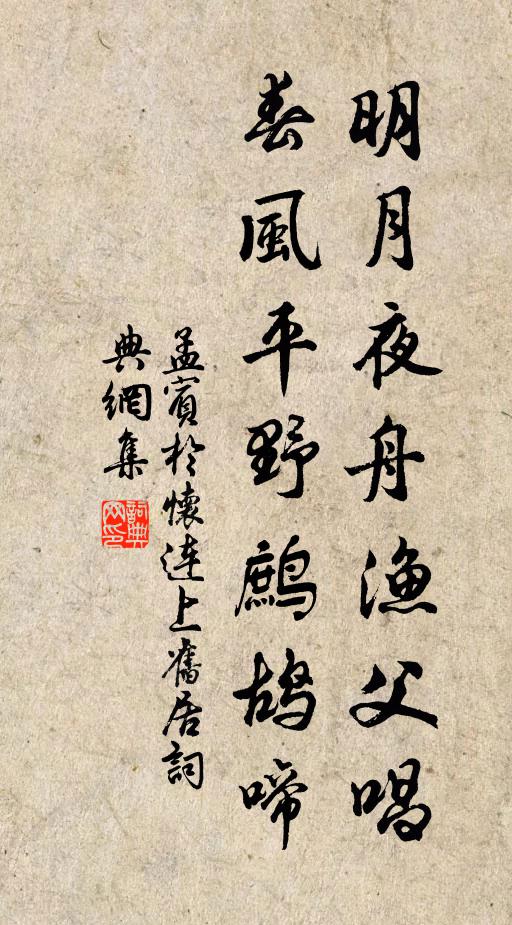 明月夜舟漁父唱
春風平野鷓鴣啼
孟賓於懷連上舊居詞
典網集
詞典網印